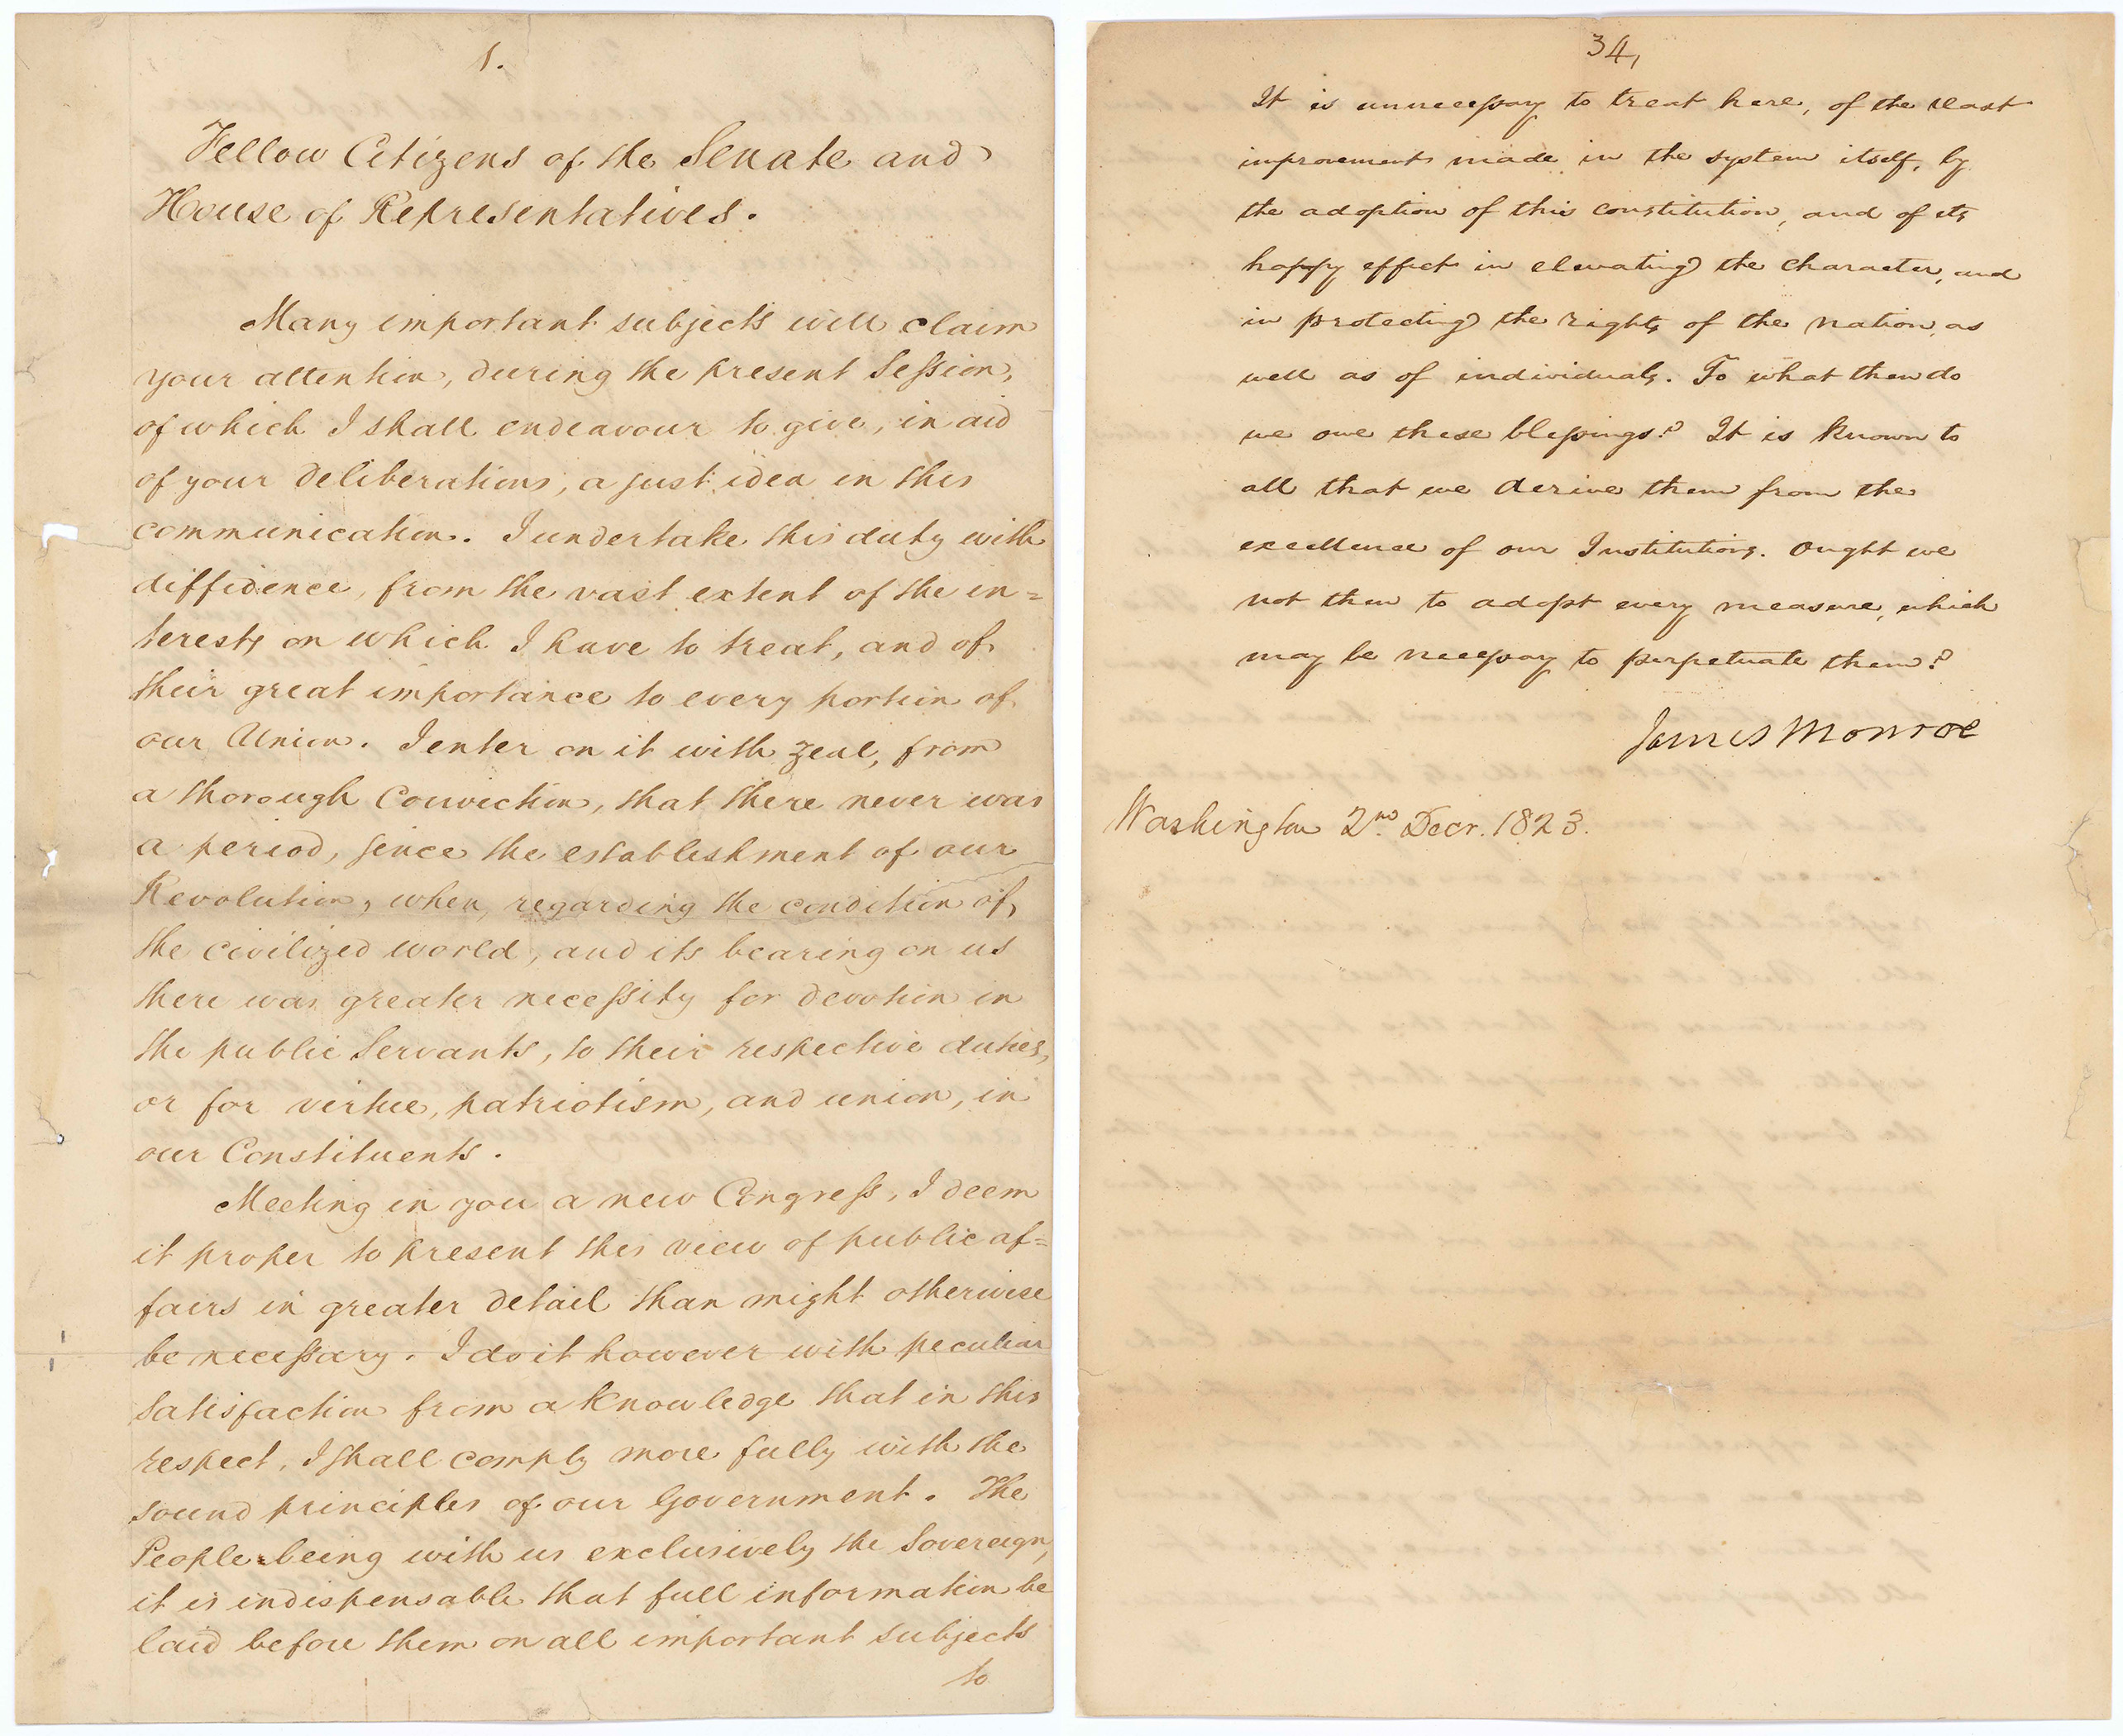 1.
Fellow Citizens of the Senate and
House of Representatives.
Many important subjects will claim
your attention, during the present Session,
of which I shall endeavour to give, in aid
of your deliberations, a just idea in this
communication. I undertake this duty with
diffidence, from the vast extent of the in=
terests on which I have to treat, and of
their great importance to every portion of
our Union. I enter on it with zeal, from
a thorough Conviction, that there never was
a period, since the establishment of our
Revolution, when, regarding the condition of,
the civilized world, and its bearing on us
there was greater necessity for devotion in
the public Servants, to their respective duties,
or for virtue, patriotism, and union, in
our Constituents.
Meeting in you a new Congress, I deem
it proper to present this view of public af=
fairs in greater detail than might otherwise
be necessary. I do it however with peculiar
satisfaction from a knowledge that in this
respect, I shall comply more fully with the
sound principles of our Government. The
People being with us exclusively the Sovereign,
it is indispensable that full information be
laid before them on all important subjects
to
34,
It is unnecessary to treat here, of the vast
improvement made in the system itself, by
the adoption of this constitution, and of its
happy effect in elevating the character, and
in protecting the rights of the nation, as
well as of individuals. To what then do
we owe these blessings? It is known to
all that we derive them from the
excellence of our Institutions. Ought we
not then to adopt every measure, which
may be necessary to perpetuate them?
James Monroe
Washington 2nd Decr. 1823.